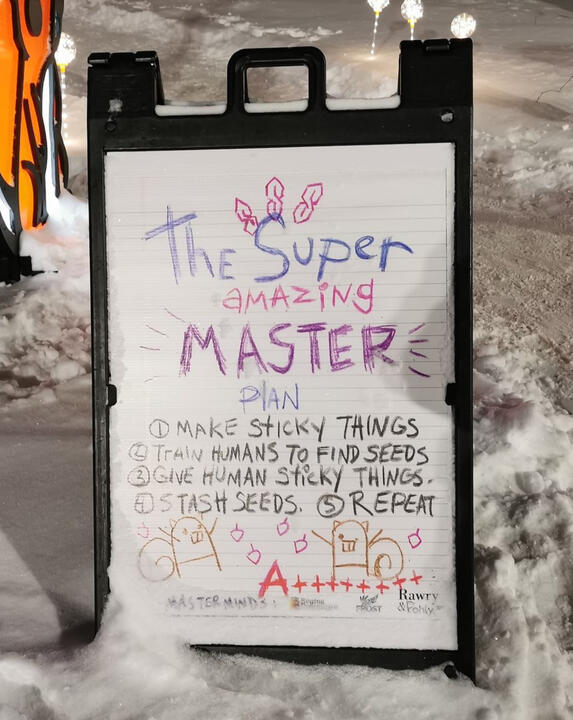 The Super
aMAZiNG
MASTER
PlAN
① MAKE StiCKY THINGS
② TraiN HUMANS TO FIND SEEDS
③ GIVE HUMAN StiCKY THINGS.
④ STASH SEEDS. ⑤ REPEAT
A++++++++
MASTERMINDS: Regina FROST Rawry
& Pohly